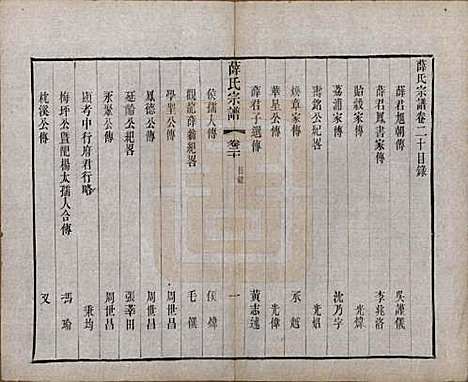 薛氏宗譜卷二十目錄
薛君旭朝傳 吳謹儀
薛君鳳書家傳 李兆洛
貽穀家傳 光煒
荔浦家傳 沈乃字
壽銘公紀畧 光炤
煥章家傳 承越
華星公傳 光偉
薛君子選傳 黃志述
薛氏宗譜 卷二十 目錄 一
侯孺人傳 侯煒
觀龍薛翁紀畧 毛儀
學半公傳 周世昌
鳳德公傳 周世昌
延齡公紀畧 張莘田
永聚公傳 周世昌
顯考中行府君行略 秉均
梅坪公暨配楊太孺人合傳 馮瑜
杭溪公傳 又